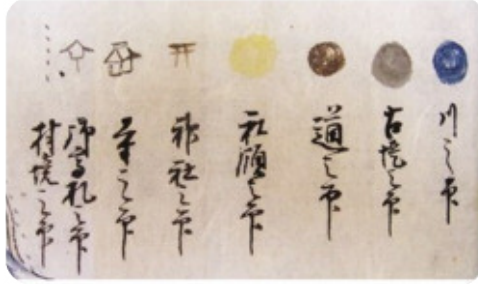 川之印
古境之印
道之印
社領之印
神社之印
寺之印
御高札之印
村境之印